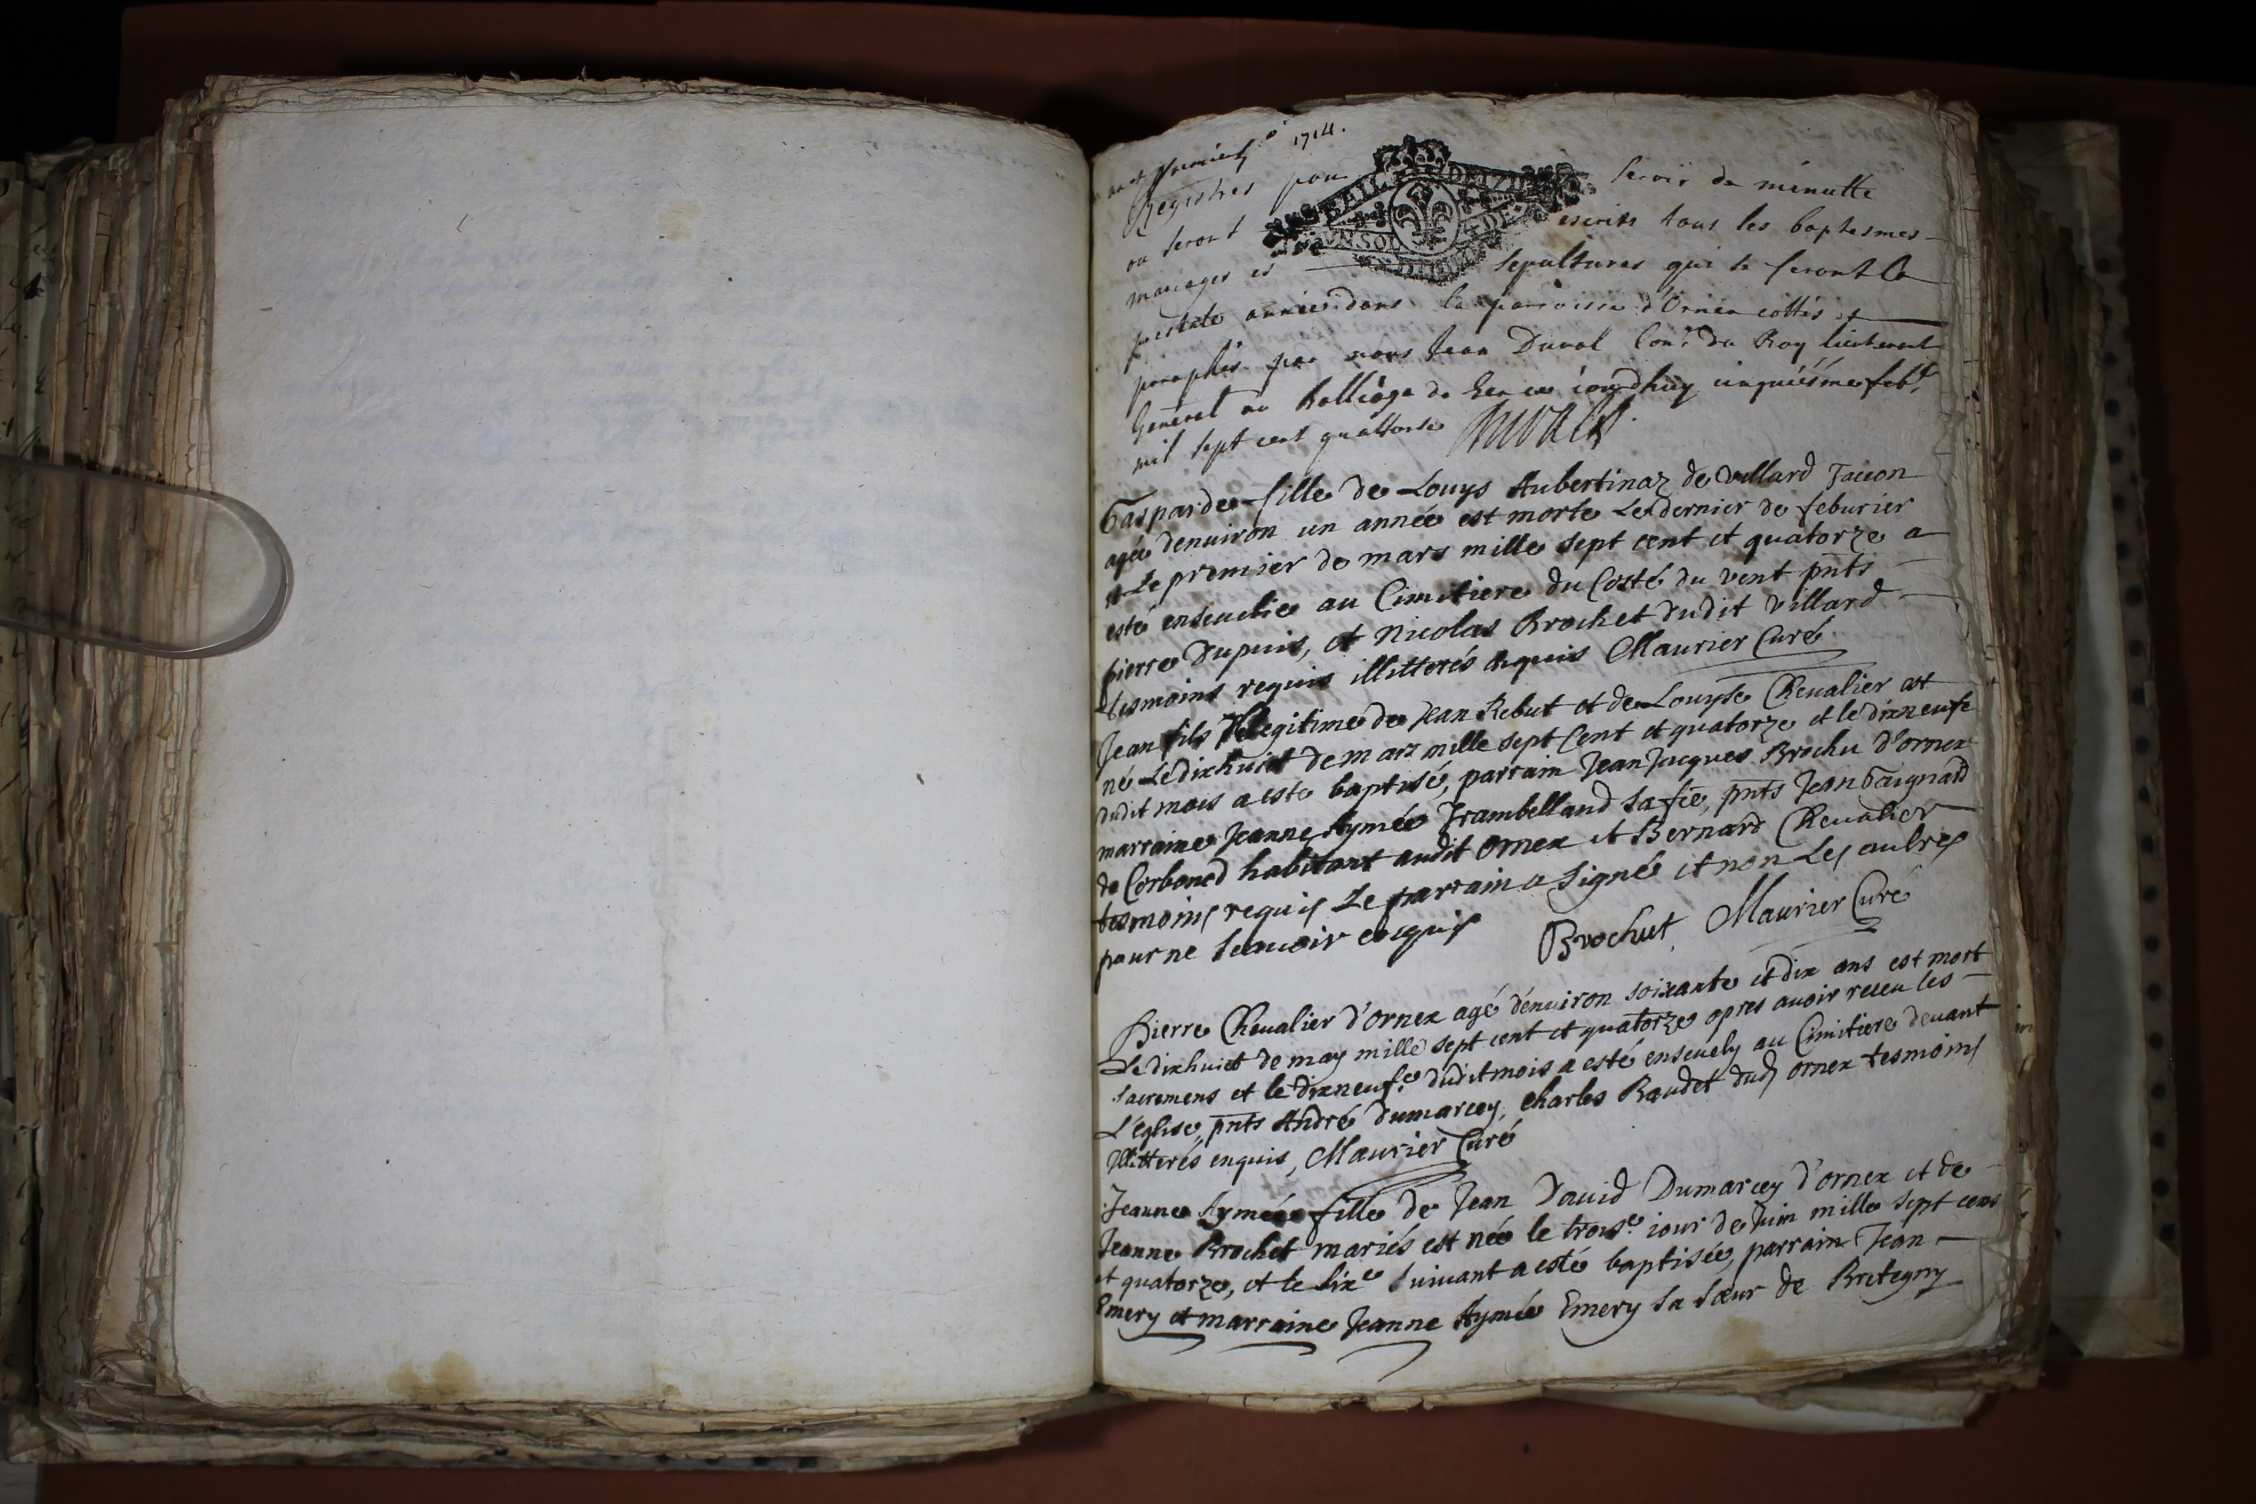 1714.
Registres pour servir de minutte
ou seront escrits tous les baptesmes
mariages et sepultures qui se feront la
presente année dans la parroisse d'Ornex cottés et
paraphés par nous Jean Duval Con.r du Roy lieutenant
General au Balliage de Gex ce iourdhuy cinquiésme feb.r
mil sept cent quattorse Duval
BAIL DE
UN SOL
Gasparde fille de Louys Aubertinaz de Villard Tacon
agée denuiron un année est morte Le dernier de feburier
et Le premier de mars mille sept cent et quatorze a
esté enseuelie au Cimitiere du Costé du vent pnts
pierre Dupuis, et Nicolas Brochet dudit Villard
tesmoins requis illitterés enquis Maurier Curé
Jean fils legitime de Jean Rebut et de Louyse Cheualier est
né Le dixhuict de mars mille sept Cent et quatorze et le dixneufe
dudit mois a este baptisé, parrain Jean Jacques Brochu d'ornex
marraine Jeanne Aymée Trambelland sa fe, pnts Jean Gaignard
de Corbonod habitant audit Ornex et Bernard Cheualier
tesmoins requis Le parrain a signé et non Les autres
pour ne scauoir enquis Brochut Maurier Curé
Pierre Cheualier d'ornex agé d'enuiron soixante et dix ans est mort
Le dixhuict de may mille sept cent et quatorze apres auoir receu les
sacremens et le dixneufe dudit mois a esté enseuely au Cimitiere deuant
L'église, pnts André Dumarcey, Charles Baudet dud ornex tesmoins
Illitterés enquis, Maurier Curé
Jeanne Aymée fille de Jean Dauid Dumarcey d'ornex et de
Jeanne Brochet mariés est née le trois.e iour de Juin mille sept cens
et quatorze, et le sixe suiuant a esté baptisée, parrain Jean
Emery et marraine Jeanne Aymée Emery sa sœur de Bretegny